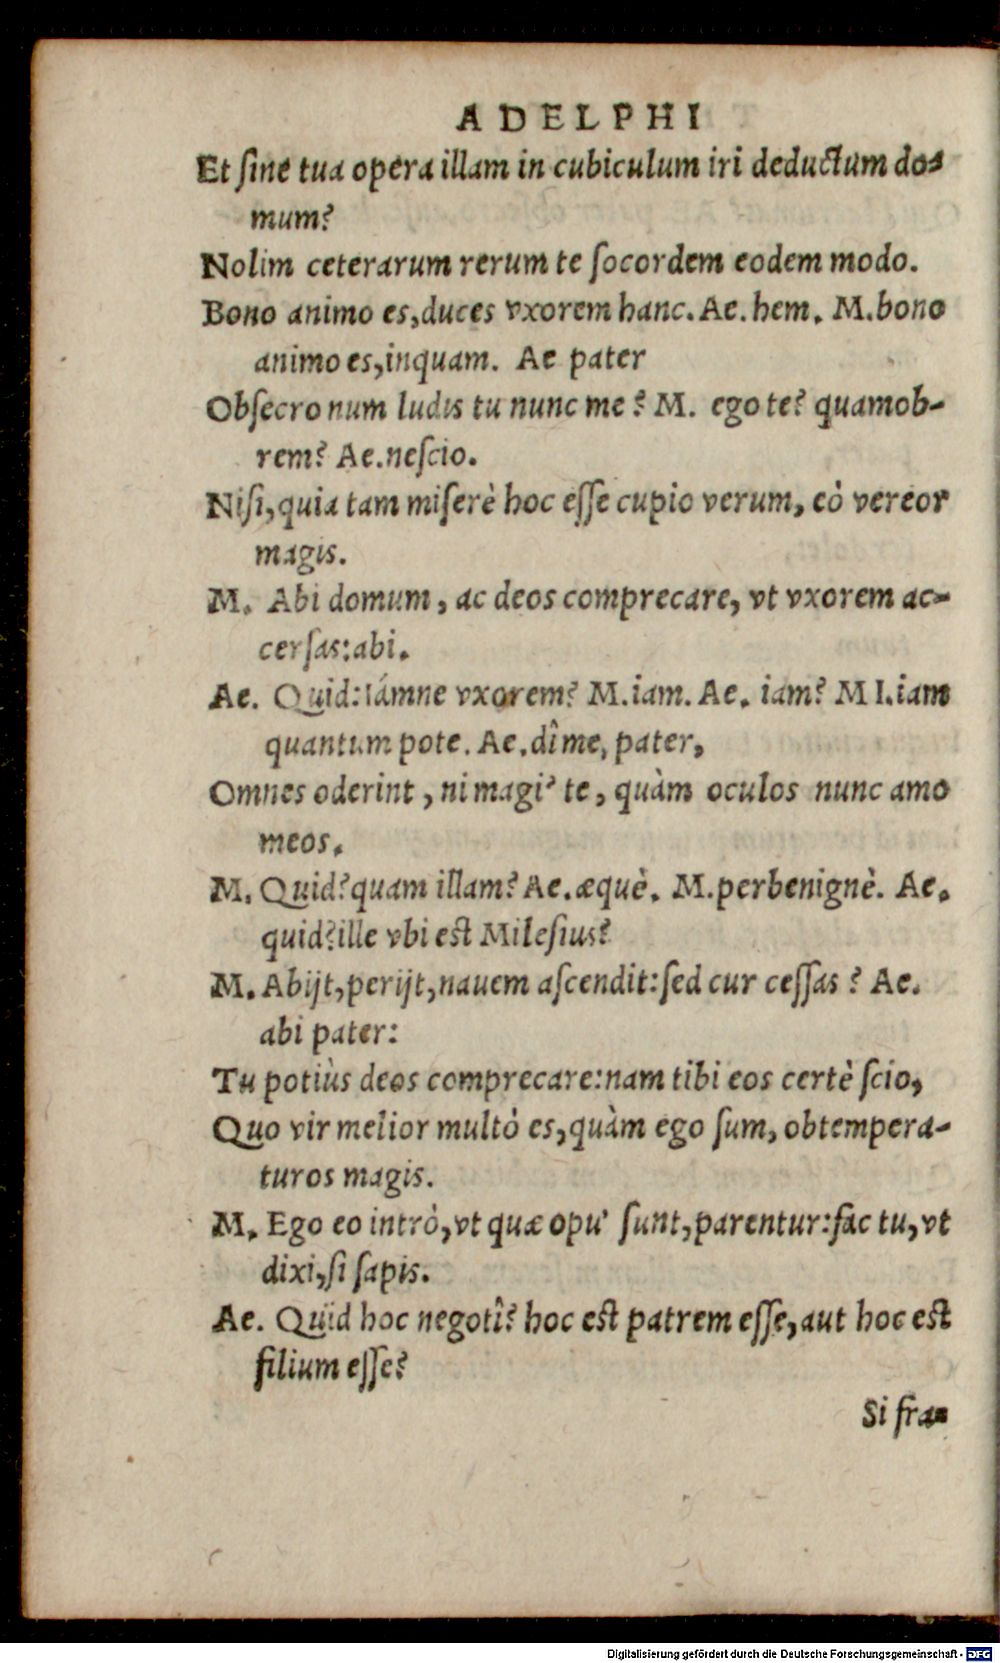 ADELPHI
Et ſine tua opera illam in cubiculum iri deductum do-
mum?
Nolim ceterarum rerum te ſocordem eodem modo.
Bono animo es,duces vxorem hanc. Ae. hem. M. bono
animo es,inquam. Ae pater
Obſecro num ludis tu nunc me? M. ego te? quamob-
rem? Ae. neſcio.
Niſi,quia tam miſerè hoc eſſe cupio verum, eò vereor
magis.
M. Abi domum, ac deos comprecare, vt vxorem ac-
cerſas:abi.
Ae. Quid:Iámne vxorem? M. iam. Ae. iam? MI.iam
quantum pote. Ae. dî me, pater,
Omnes oderint, ni magi' te, quàm oculos nunc amo
meos.
M. Quid?quam illam? Ae. æquè. M. perbenignè. Ae.
quid?ille vbi est Mileſius?
M. Abijt,perijt,nauem aſcendit:ſed cur ceſſas? Ae.
abi pater:
Tu potiùs deos comprecare:nam tibi eos certè ſcio,
Quo vir melior multò es,quàm ego ſum, obtempera-
turos magis.
M. Ego eo intrò,vt quæ opu' ſunt,parentur:fac tu,vt
dixi,ſi ſapis.
Ae. Quid hoc negotî? hoc est patrem eſſe,aut hoc est
filium eſſe?
Si fra-
Digitalisierung gefördert durch die Deutsche Forschungsgemeinschaft - DFG